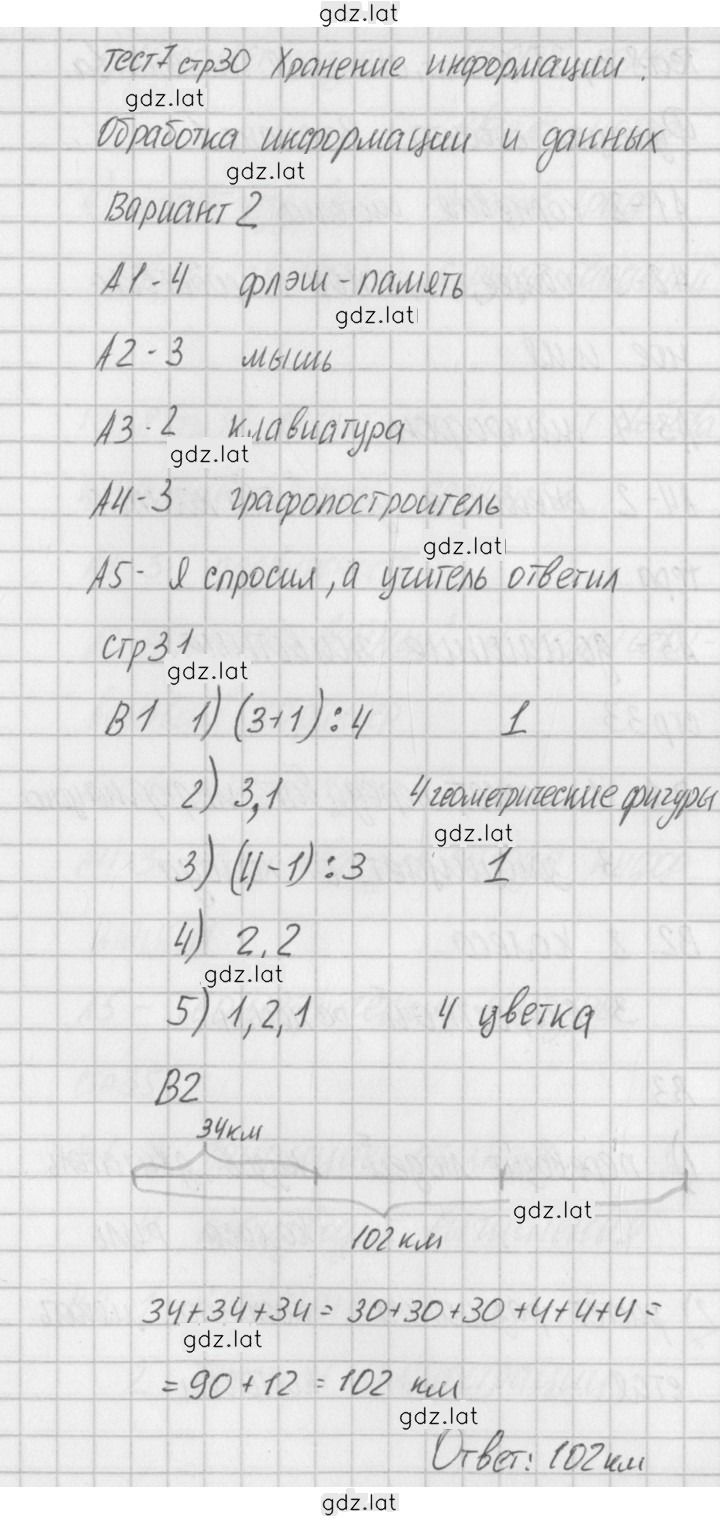 gdz.lat
тест 7 стр 30 Хранение информации.
gdz.lat
Обработка информации и данных
gdz.lat
Вариант 2
А1-4 флэш-память
gdz.lat
А2-3 мышь
А3-2 клавиатура
gdz.lat
А4-3 графопостроитель
gdz.lat
А5- Я спросил, а учитель ответил
стр 31
gdz.lat
В1 1) (3+1):4 1
2) 3,1 4 геометрические фигуры
gdz.lat
3) (4-1):3 1
4) 2,2
gdz.lat
5) 1,2,1 4 цветка
В2
34км
gdz.lat
102 км
34+34+34= 30+30+30+4+4+4=
gdz.lat
=90+12=102 км
gdz.lat
Ответ: 102 км
gdz.lat